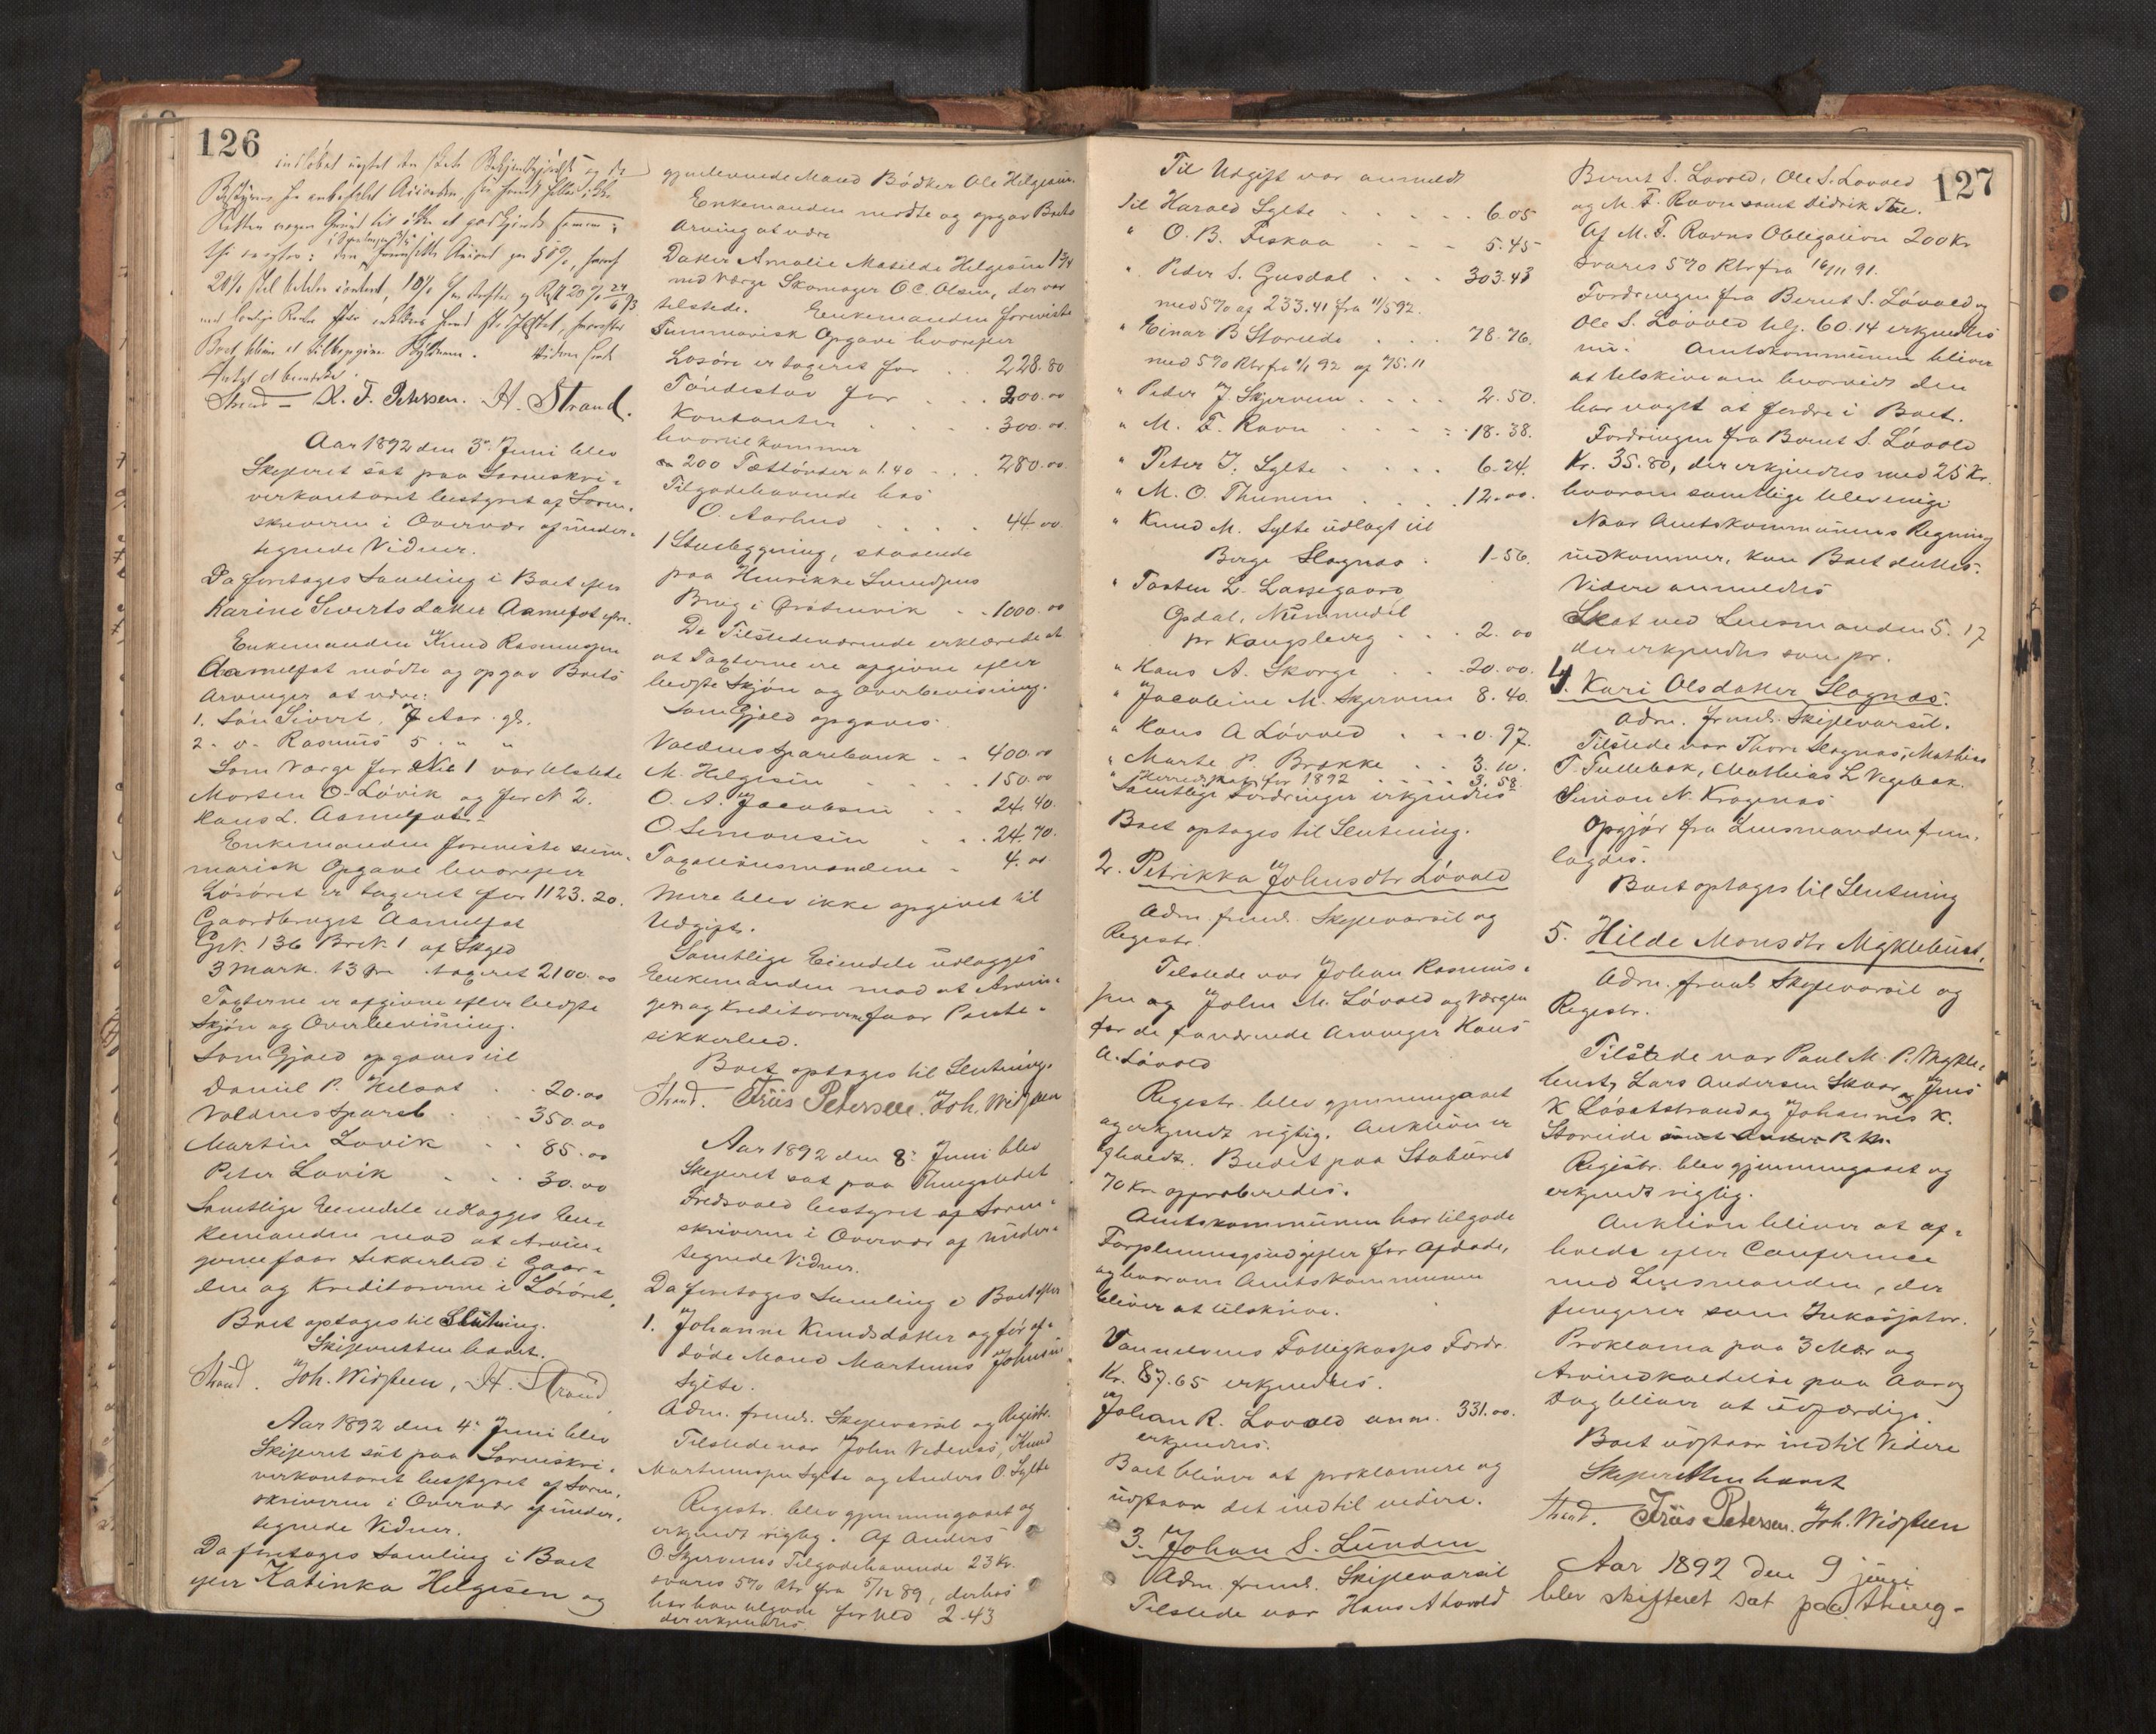 126
indløbet
Retten nogen Grund til ikke at godkjende samme;
20%
Strand - K. F. Petersen. H. Strand.
Aar 1892 den 3' Juni blev
Skifteret sat paa Sorenskri-
verkontoret bestyret af Soren-
skriveren i Overvær af under-
tegnede Vidner.
Da foretoges Samling i Boet efter
Karine Sivertsdatter Aamelfot
Enkemanden Knud Rasmussen
Aamelfot mødte og opgav Boets
Arvinger at være:
1. Søn Sivert, 7 Aar gl.
2. o- Rasmus 5 " "
Som Værge for No 1 var tilstede
Morten O. Løvik og for N 2.
Hans L. Aamelfot.-
Enkemanden foreviste sum-
marisk Opgave hvorefter
Løsøret er tageret for 1123.20.
Gaardbruget Aamelfot
Grn. 136 Brn. 1 af Skyld
3 Mark 13 Øre tageret 2100.00
Taxterne er afgivne efter bedste
Skjøn og Overbevisning.
Som Gjæld opgaves til
Daniel P. Helset . . 20.00
Voldens Spareb . . 350.00
Martin Lovik . . 85.00
Peter Lovik . . 30.00
Samtlige Eiendele udlægges En-
kemanden mod at Arvin-
gerne faar Sikkerhed i Gaar-
den og Kreditorerne i Løsøret.
Boet optages til Slutning.
Skifteretten hævet.
Strand. Joh. Widsteen, H. Strand
Aar 1892 den 4' Juni blev
Skifteret sat paa Sorenskri-
verkontoret bestyret af Soren-
skriveren i Overvær af under-
tegnede Vidner.
Da foretoges Samling i Boet
efter Katinka Helgesen og
gjenlevende Mand Bødker Ole Helgesen.
Enkemanden mødte og opgav Boets
Arving at være
Datter Amalie Matilde Helgesen
med Værge Skomager O C. Olsen, der var
tilstede. Enkemanden foreviste
Summarisk Opgave hvorefter
Løsøre er tageret for . . 228.80
Tøndestav for . . . 200.00
Kontanter . . . . 300.00
hvortil kommer
200 Tættønder a 1.40 . . 280.00
Tilgodehavende hos
O. Aarhus . . . . 44.00
1 Stuebygning, staaende
paa Henrikke
Brug i Ørstenvik . . 1000.00
De Tilstedeværende erklærede
at Taxterne ere afgivne efter
bedste Skjøn og Overbevisning.
Som Gjæld opgaves:
Voldens Sparebank . . 400.00
M. Helgesen . . . 150.00
O. A. Jacobsen . . 24.40.
O Simonsen . . 24.70.
Taxationsmændene . 4.00
Mere blev ikke opgivet til
Udgift.
Samtlige Eiendele udlægges
Enkemanden mod at Arvin-
gen og Kreditorerne faar Pante-
sikkerhed.
Boet optages til Slutning.
Strand. Friis Petersen. Joh. Widsteen
Aar 1892 den 8' Juni blev
Skifteret sat paa Thingstedet
Fredsvold bestyret af Soren-
skriveren i Overvær af under-
tegnede Vidner.
Da foretoges Samling i Boet efter
1. Johanne Knudsdatter og før af-
døde Mand Martinus Johnsen
Sylte.
Adm. freml. Skiftevarsel og Registr.
Tilstede var John Videnæs, Knud
Martinussen Sylte og Anders O. Sylte
Registr. blev gjennemgaaet og
erkjendt rigtig. Af Anders
O. Skjervens Tilgodehavende 23 Kr.
svares 5% Rtr fra 5/12 89, derhos
har han tilgode for Ved 2.43
der erkjendtes.
127
Til Udgift var anmeldt
Til Harald Sylte . . . . . . 6.05
" O. B. Fiskaa . . . 5.45
" Peder S. Gusdal . . . 303.43
med 5% af 233.41 fra 11/5 92.
" Einar B Storeide . . . 78.76.
med 5% Rtr fra 11/1 92 af 75.11
" Peder J Skjerven . . . . 2.50.
" M. F. Ravn . . . . . 18.38.
" Peter J. Sylte . . . . 6.24.
" M. O. Thunem . . . 12.00.
" Knud M. Sylte udlagt til
Berge Slagnæs . 1.56.
" Torsten L. Lassegaard
Opdal, Nummedal
pr Kongsberg . . . 2.00
" Hans A. Skorge . . 20.00.
" Jacobine M. Skjerven 8.40.
" Hans A Løvold . . . 0.97.
" Marte P. Brække . . 3.10.
" Herredskat for 1892 . . . . 3.58.
Samtlige Fordringer erkjendtes
Boet optages til Slutning.
2. Petrikka Johnsdtr Løvold
Adm. freml. Skiftevarsel og
Registr.
Tilstede var Johan Rasmus-
sen og John M. Løvold og Værgen
for de fraværende Arvinger Hans
A. Løvold
Registr. blev gjennemgaaet
og erkjendt rigtig. Auktion er
afholdt. Budet paa Staburet
70 Kr. approberedes.
Amtskommunen har tilgode
Forpleiningsudgifter for Afdøde,
og hvorom Amtskommunen
bliver at tilskrive.
Vannelvens Fattigkasses Fordr.
Kr. 87.65 erkjendtes.
Johan R. Lovold anm. 331.00.
erkjendtes.
Boet bliver at proklamere og
udstaar det indtil videre.
3. Johan S. Lunden
Adm. freml. Skiftevarsel
Tilstede var Hans A Lovold
Bernt S. Lovold, Ole S. Lovold
og M. F. Ravn samt Didrik
Af M. F. Ravns Obligation 200 Kr
svares 5% Rtr fra 16/11 91.
Fordringen fra Bernt S. Løvold og
Ole S. Løvold tilg. 60.14 erkjendtes
nu. Amtskommunen bliver
at tilskrive om hvorvidt den
har noget at fordre i Boet.
Fordringen fra Bernt S. Løvold
Kr. 35.80, der erkjendtes med 25 Kr.
hvorom samtlige blev enige
Naar Amtskommunens Regning
indkommer, kan Boet sluttes.
Videre anmeldtes
Skat ved Lensmanden 5.17
der erkjendtes som pr.
4. Kari Olsdatter Slagnæs.
Adm. freml. Skiftevarsel.
Tilstede var Thore Slagnæs, Mathias
T. Tullebak, Mathias L Vegebak.
Simon N. Kragenæs
Opgjør fra Lensmanden frem-
lagdes.
Boet optages til Slutning
5. Hilde Monsdtr Myklebust.
Adm. freml. Skiftevarsel og
Registr.
Tilstede var Paul M. P. Mykle-
bust, Lars Andersen Skaar og Jens
K Løsetstrand og Johannes K.
Storeide
Registr. blev gjennemgaaet og
erkjendt rigtig.
Auktion bliver at af-
holde efter Conference
med Lensmanden, der
fungerer som Inkassator.
Proklama paa 3 Mdr og
Arveindkaldelse paa Aar og
Dag bliver at udfærdige.
Boet udstaar indtil Videre
Skifteretten hævet
Strand. Friis Petersen. Joh. Widsteen
Aar 1892 den 9 juni
blev skifteret sat paa thing-